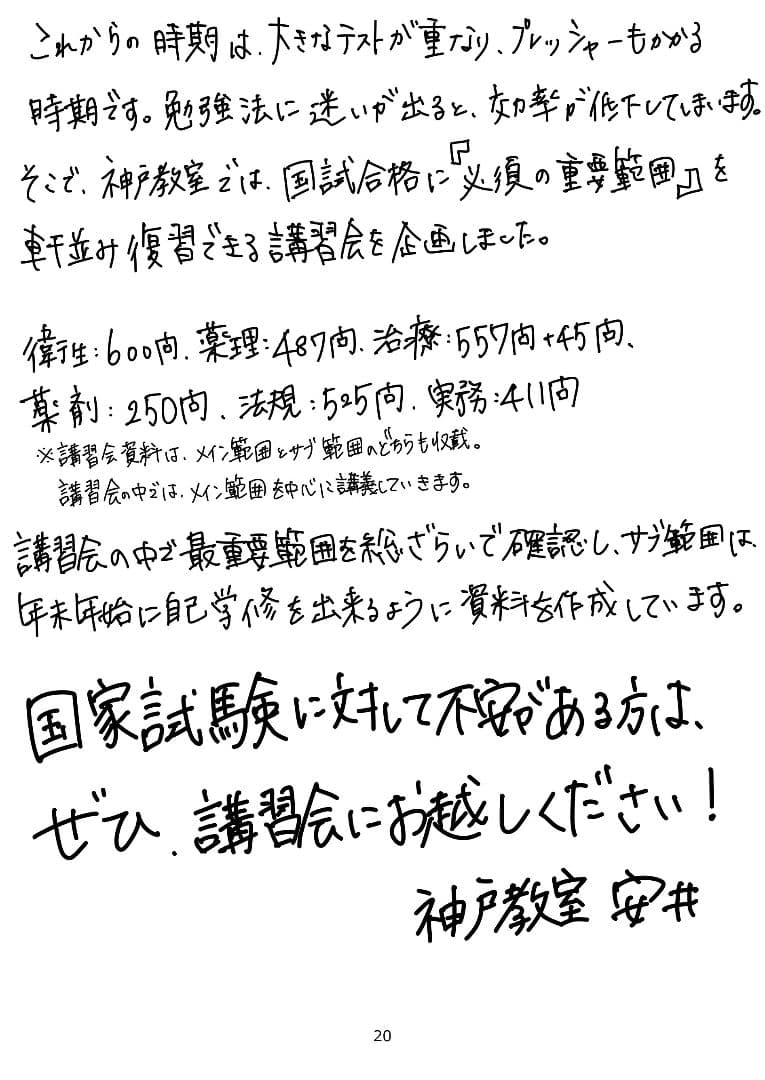 これからの時期は、大きなテストが重なり、プレッシャーもかかる
時期です。勉強法に迷いが出ると、効率が低下してしまいます。
そこで、神戸教室では、国試合格に『必須の重要範囲』を
軒並み復習できる講習会を企画しました。
衛生:600問、薬理:487問、治療:557問+45問、
薬剤:250問、法規:525問、実務:411問
※講習会資料は、メイン範囲とサブ範囲のどちらも収載。
講習会の中では、メイン範囲を中心に講義していきます。
講習会の中で最重要範囲を総ざらいで確認し、サブ範囲は、
年末年始に自己学修を出来るように資料を作成しています。
国家試験に対して不安がある方は、
ぜひ、講習会にお越しください!
神戸教室 安井
20